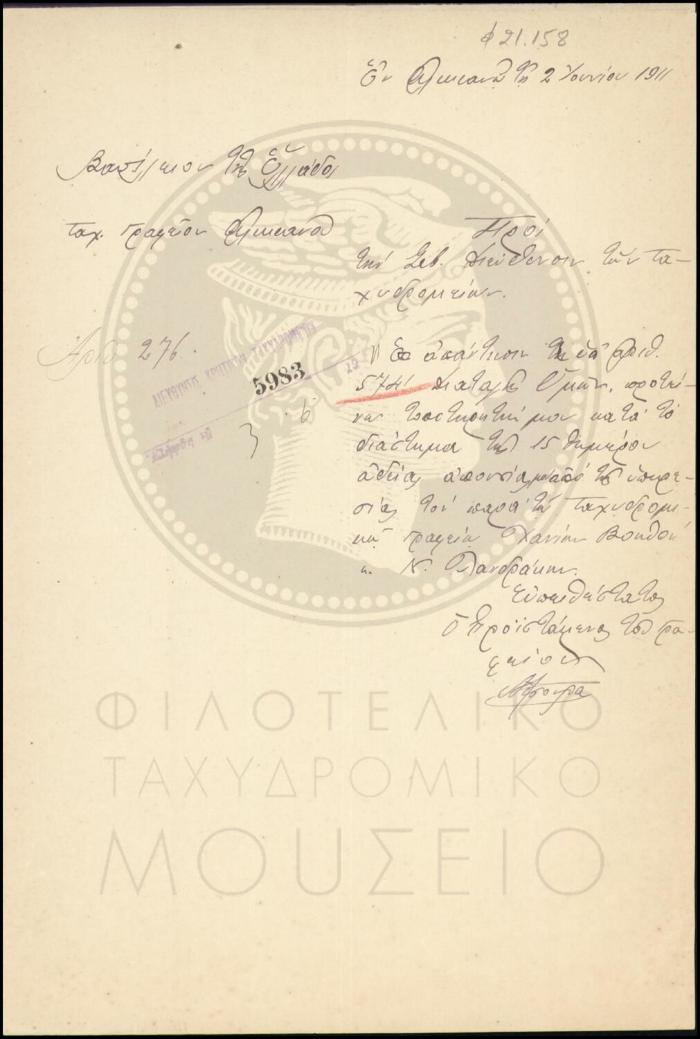 φ 21.158
Ἐν Ἀλικιανῷ τῇ 2 Ἰουνίου 1911
Βασίλειον τῆς Ἑλλάδος
Ταχ. Γραφεῖον Ἀλικιανοῦ
Πρὸς
τὴν Σεβ. Διεύθυνσιν τῶν Τα-
χυδρομείων.
Ἀριθ. 276.
5983
3 6
Εἰς ἀπάντησιν τῆς ὑπ' ἀριθ.
5741 διαταγῆς Ὑμῶν, προτεί-
νω
μου κατὰ τὸ
διάστημα τῆς 15θημέρου
ἀδείας ἀπουσίας μου ἀπὸ τῆς ὑπηρε-
σίας τὸν παρὰ τῷ Ταχυδρομι-
κῷ Γραφείῳ Χανίων Βοηθὸν
κ. Ν.
Εὐπειθέστατος
Ὁ Προϊστάμενος τοῦ Γρα-
φείου
ΦΙΛΟΤΕΛΙΚΟ
ΤΑΧΥΔΡΟΜΙΚΟ
ΜΟΥΣΕΙΟ